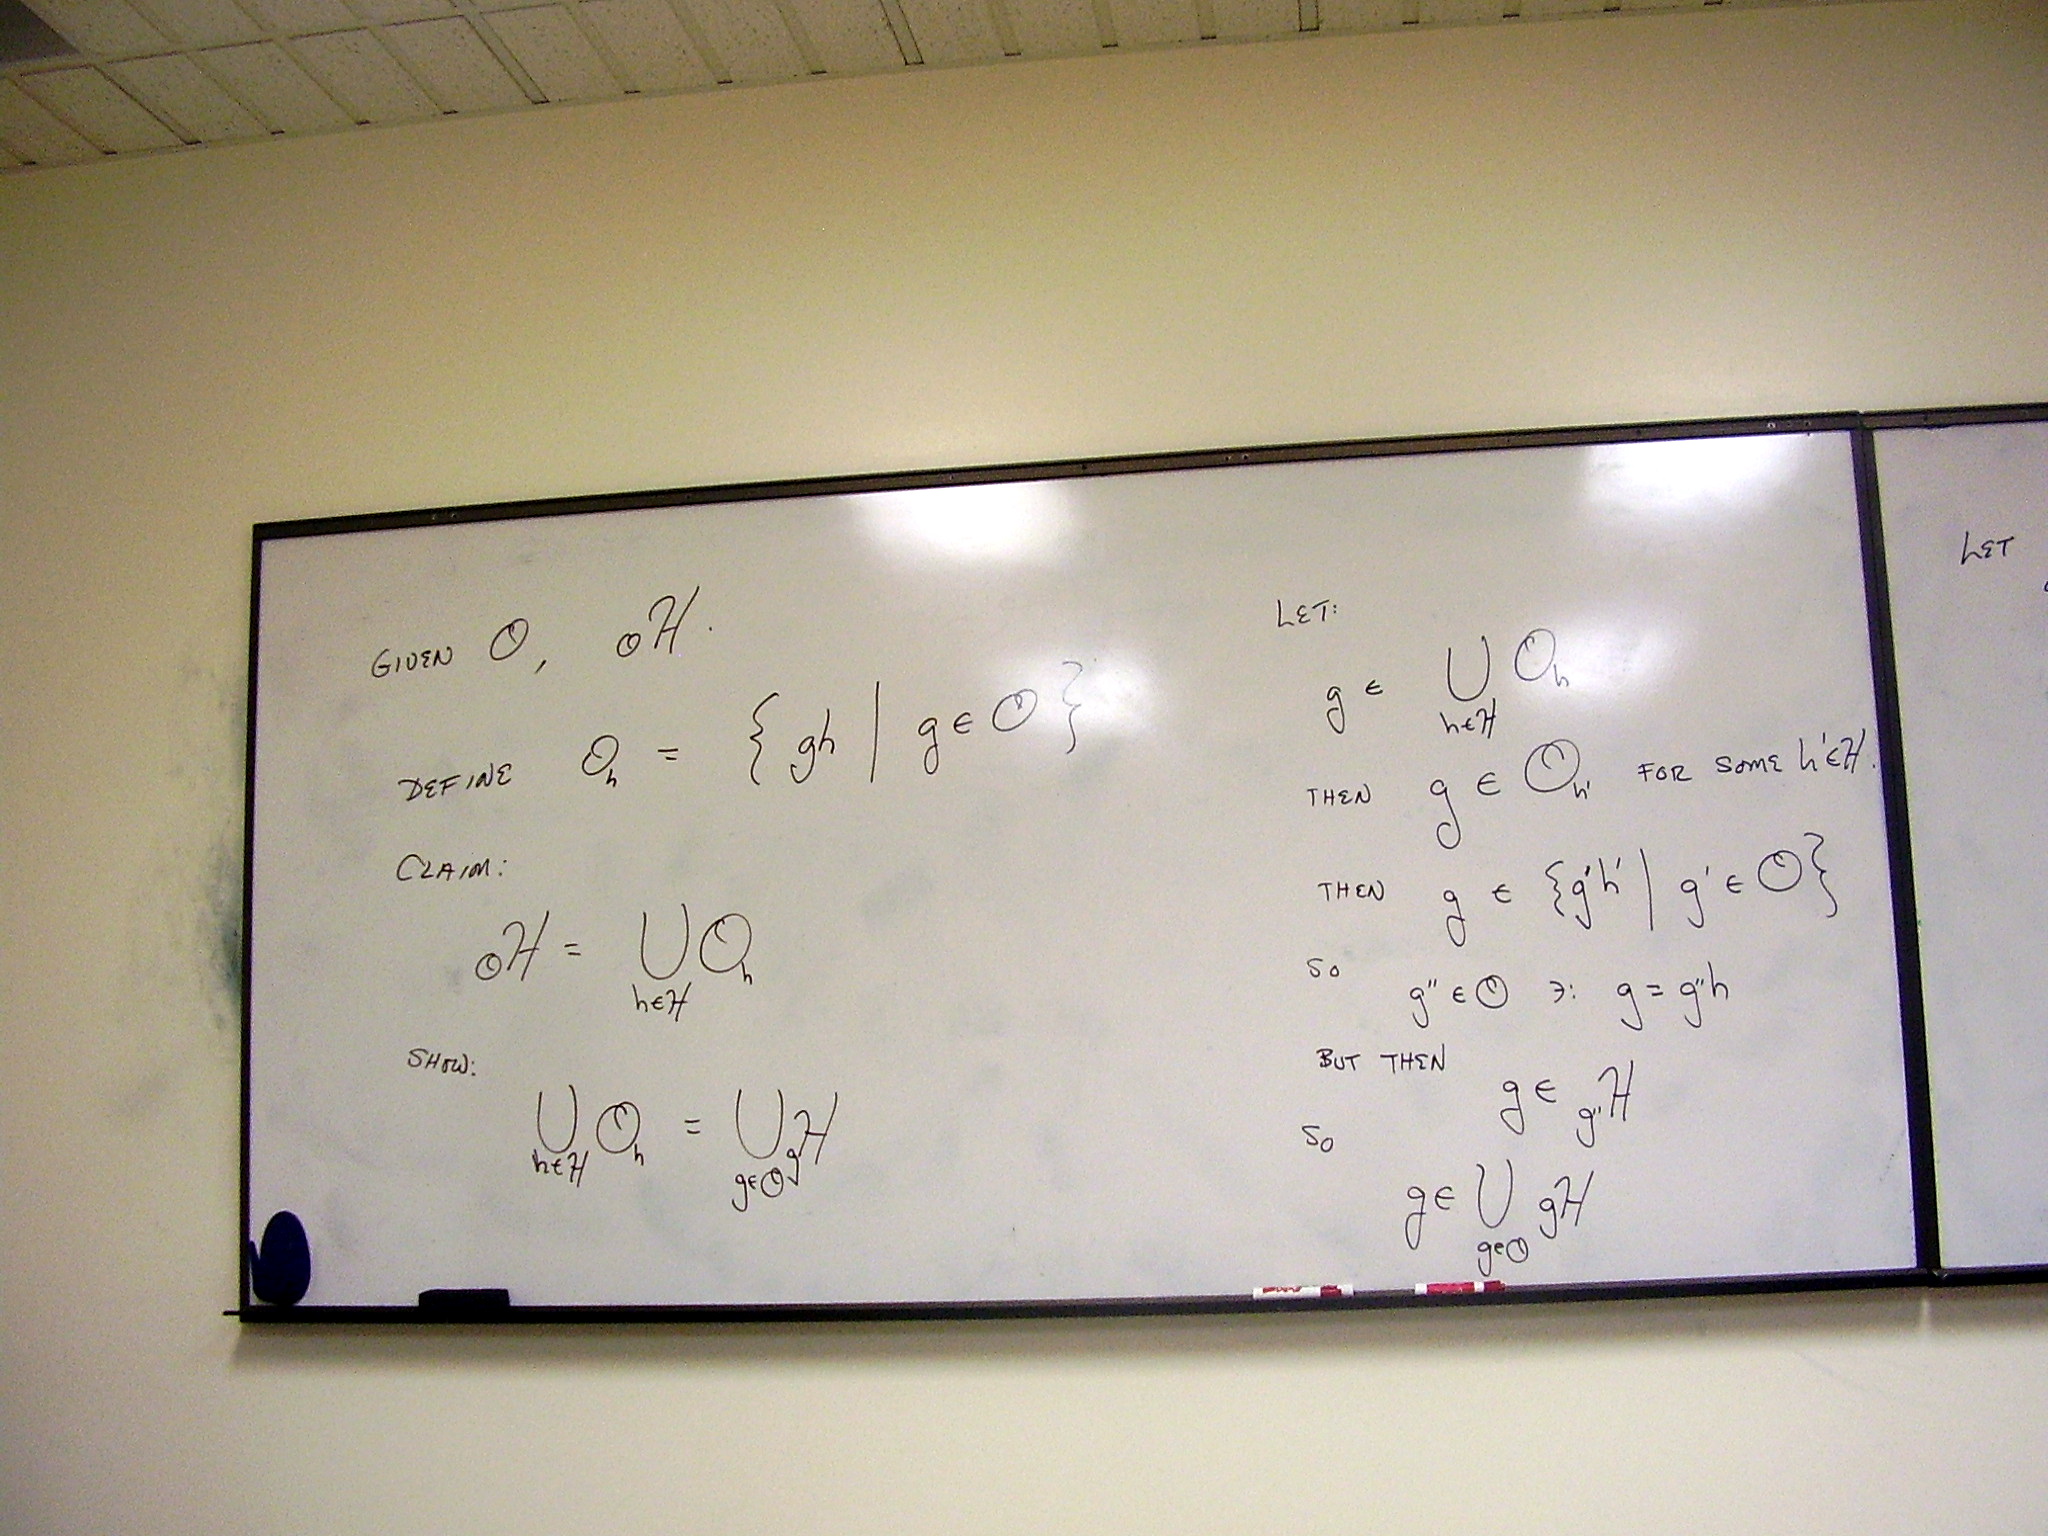 GIVEN 𝒪, 𝒪H.
DEFINE 𝒪h = { gh | g ∈ 𝒪 }
CLAIM:
𝒪H = ⋃ 𝒪h
h∈H
SHOW:
⋃ 𝒪h = ⋃ gH
h∈H g∈𝒪
LET:
g ∈ ⋃ 𝒪h
h∈H
THEN g ∈ 𝒪h' FOR SOME h'∈H.
THEN g ∈ {g'h' | g' ∈ 𝒪}
SO
g'' ∈ 𝒪 ∋: g = g''h
BUT THEN
g ∈ g''H
SO
g ∈ ⋃ gH
g∈𝒪
LET